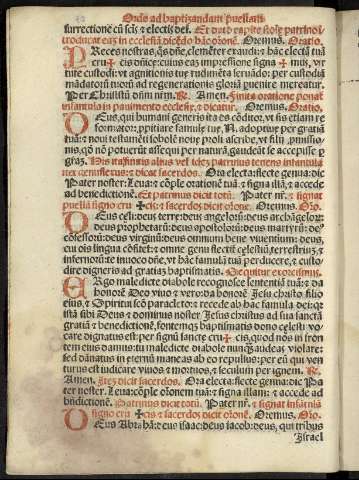 Ordo ad baptizandam puellam
surrectionē cū scīs ⁊ electis dei. Et duo rapite stole patrinoſ
troducat eaȝ in ecclesiā dicēdo hāc orōnē. Oremus. Oratio.
PReces nostras, qs dn̄e, clemēter exaudi: ⁊ hāc electā tuā
cru✠cis dn̄ice, cuius eaȝ impressione signa✠mus, vir
tute custodi: vt agnitionis tue rudimēta seruādo: per custodiā
mādatorū tuorū ad regenerationis gloriā puenire mereatur.
Per Christū dn̄m nrm. R. Amen. Finita oratione ponat
infantula in pauimento ecclesie, ⁊ dicatur. Oremus. Oratio.
DEus, qui humani generis ita es cōditor, vt sis etiam re
formator: ppitiare familie tue, N. adoptiue per gratiā
tuā: ⁊ noui testamēti sobole noue proli ascribe, vt filij pmissio-
nis, qd nō potuerūt assequi per naturā, gaudeāt se accepisse p
gratiā.
ite genuflectus: ⁊ dicat sacerdos. Ora electa: flecte genua: dic
Pater noster: Leua: cōple orationē tuā: ⁊ signa illā, ⁊ accede
ad benedictionē. Et patrinus dicit totū. Pater nr̄. ⁊ signat
puellā signo cru✠cis ⁊ sacerdos dicit orōnē. Oremus. Orō.
DEus celi: deus terre: deus angelorū: deus archāgelorū:
deus prophetarū: deus apostolorū: deus martyrū: deꝰ
cōfessorū: deus virginū: deus omnium bene viuentium: deus,
cui oīs lingua cōfitet: ⁊ omne genu flectit celestiū, terrestriuȝ, ⁊
infernorū: te inuoco dn̄e, vt hāc famulā tuā perducere, ⁊ custo
dire digneris ad gratiaȝ baptismatis. Sequitur exorcismus.
ERgo maledicte diabole recognosce sententiā tuā: ⁊ da
honorē Deo viuo ⁊ vero: da honorē Jesu christo filio
eius, ⁊ Spirituiscō paracleto: ⁊ recede ab hac famula dei: qr
istā sibi Deus ⁊ dominus noster Jesus christus ad suā sanctā
gratiā ⁊ benedictionē, fontemqȝ baptismatis dono celesti vo-
care dignatus est: per signū sancte cru✠cis, quod nos in fron
tem eius damus: tu maledicte diabole nunqȝ audeas violare:
sed dānatus in eternū maneas ab eo repulsus: per eū qui ven
turus est iudicare viuos ⁊ mortuos, ⁊ seculum per ignem. R.
Amen. Iteȝ dicit sacerdos. Ora electa: flecte genua: dic Pa
ter noster. Leua: cōple orationem tuā: ⁊ signa illam: ⁊ accede ad
bn̄dictionē. Patrinus dicit totū. Pater nr̄. ⁊ signat infātulā
signo cru✠cis ⁊ sacerdos dicit orōnē. Oremus. Orō.
DEus Abrahā: deus isaac: deus iacob: deus, qui tribus
Israel